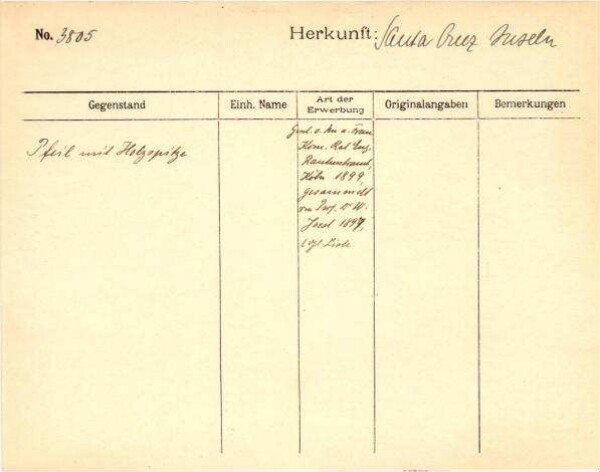 No. 3805
Herkunft: Santa Cruz Inseln
Gegenstand
Einh. Name
Art der
Erwerbung
Originalangaben
Bemerkungen
Pfeil mit Holzspitze
Frau
Kom. Rat Eug.
Rautenstrauch,
Köln 1899,
gesammelt
von
1897,
Liste